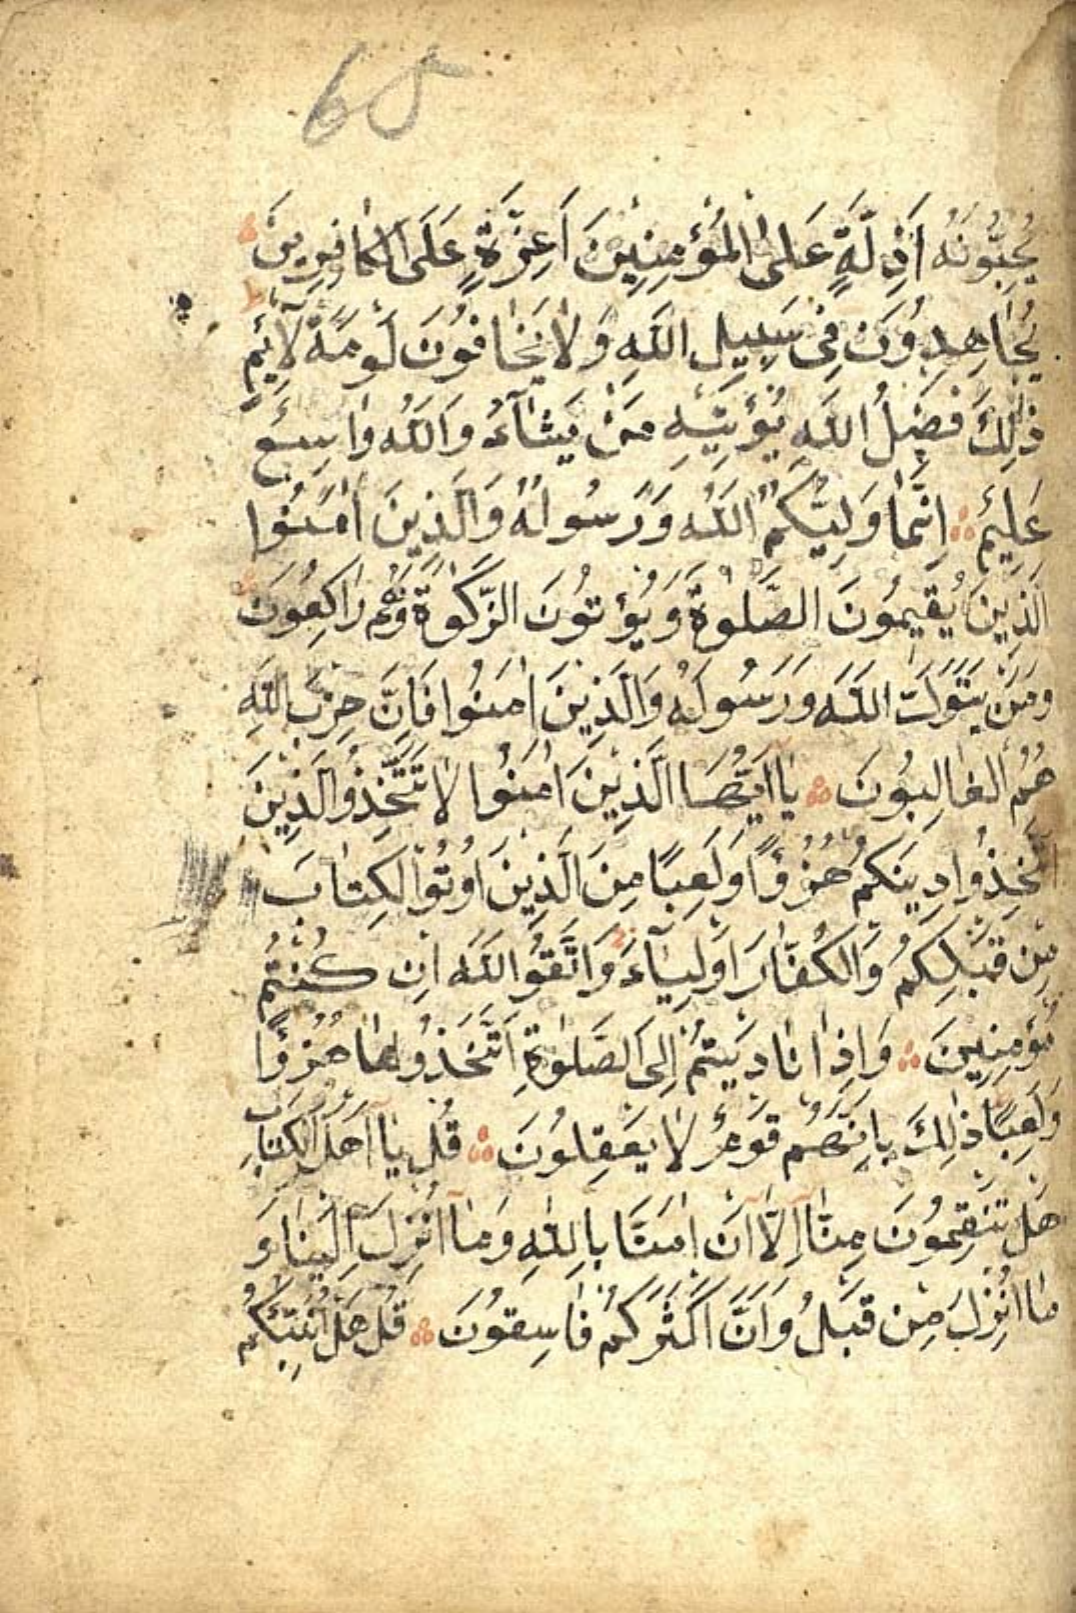 68
يُحِبُّونَهُ اَذِلَّةٍ عَلَى الْمُؤْمِنِينَ اَعِزَّةٍ عَلَى الْكَافِرِينَ
يُجَاهِدُونَ فِى سَبِيلِ اللّٰهِ وَلَا يَخَافُونَ لَوْمَةَ لَائِمٍ
ذٰلِكَ فَضْلُ اللّٰهِ يُؤْتِيهِ مَنْ يَشَآءُ وَاللّٰهُ وَاسِعٌ
عَلِيمٌ اِنَّمَا وَلِيُّكُمُ اللّٰهُ وَرَسُولُهُ وَالَّذِينَ اٰمَنُوا
الَّذِينَ يُقِيمُونَ الصَّلٰوةَ وَيُؤْتُونَ الزَّكٰوةَ وَهُمْ رَاكِعُونَ
وَمَنْ يَتَوَلَّ اللّٰهَ وَرَسُولَهُ وَالَّذِينَ اٰمَنُوا فَاِنَّ حِزْبَ اللّٰهِ
هُمُ الْغَالِبُونَ يَا اَيُّهَا الَّذِينَ اٰمَنُوا لَا تَتَّخِذُوا الَّذِينَ
اتَّخَذُوا دِينَكُمْ هُزُوًا وَلَعِبًا مِنَ الَّذِينَ اُوتُوا الْكِتَابَ
مِنْ قَبْلِكُمْ وَالْكُفَّارَ اَوْلِيَآءَ وَاتَّقُوا اللّٰهَ اِنْ كُنْتُمْ
مُؤْمِنِينَ وَاِذَا نَادَيْتُمْ اِلَى الصَّلٰوةِ اتَّخَذُوهَا هُزُوًا
وَلَعِبًا ذٰلِكَ بِاَنَّهُمْ قَوْمٌ لَا يَعْقِلُونَ قُلْ يَا اَهْلَ الْكِتَابِ
هَلْ تَنْقِمُونَ مِنَّا اِلَّا اَنْ اٰمَنَّا بِاللّٰهِ وَمَا اُنْزِلَ اِلَيْنَا وَ
مَا اُنْزِلَ مِنْ قَبْلُ وَاَنَّ اَكْثَرَكُمْ فَاسِقُونَ قُلْ هَلْ اُنَبِّئُكُمْ